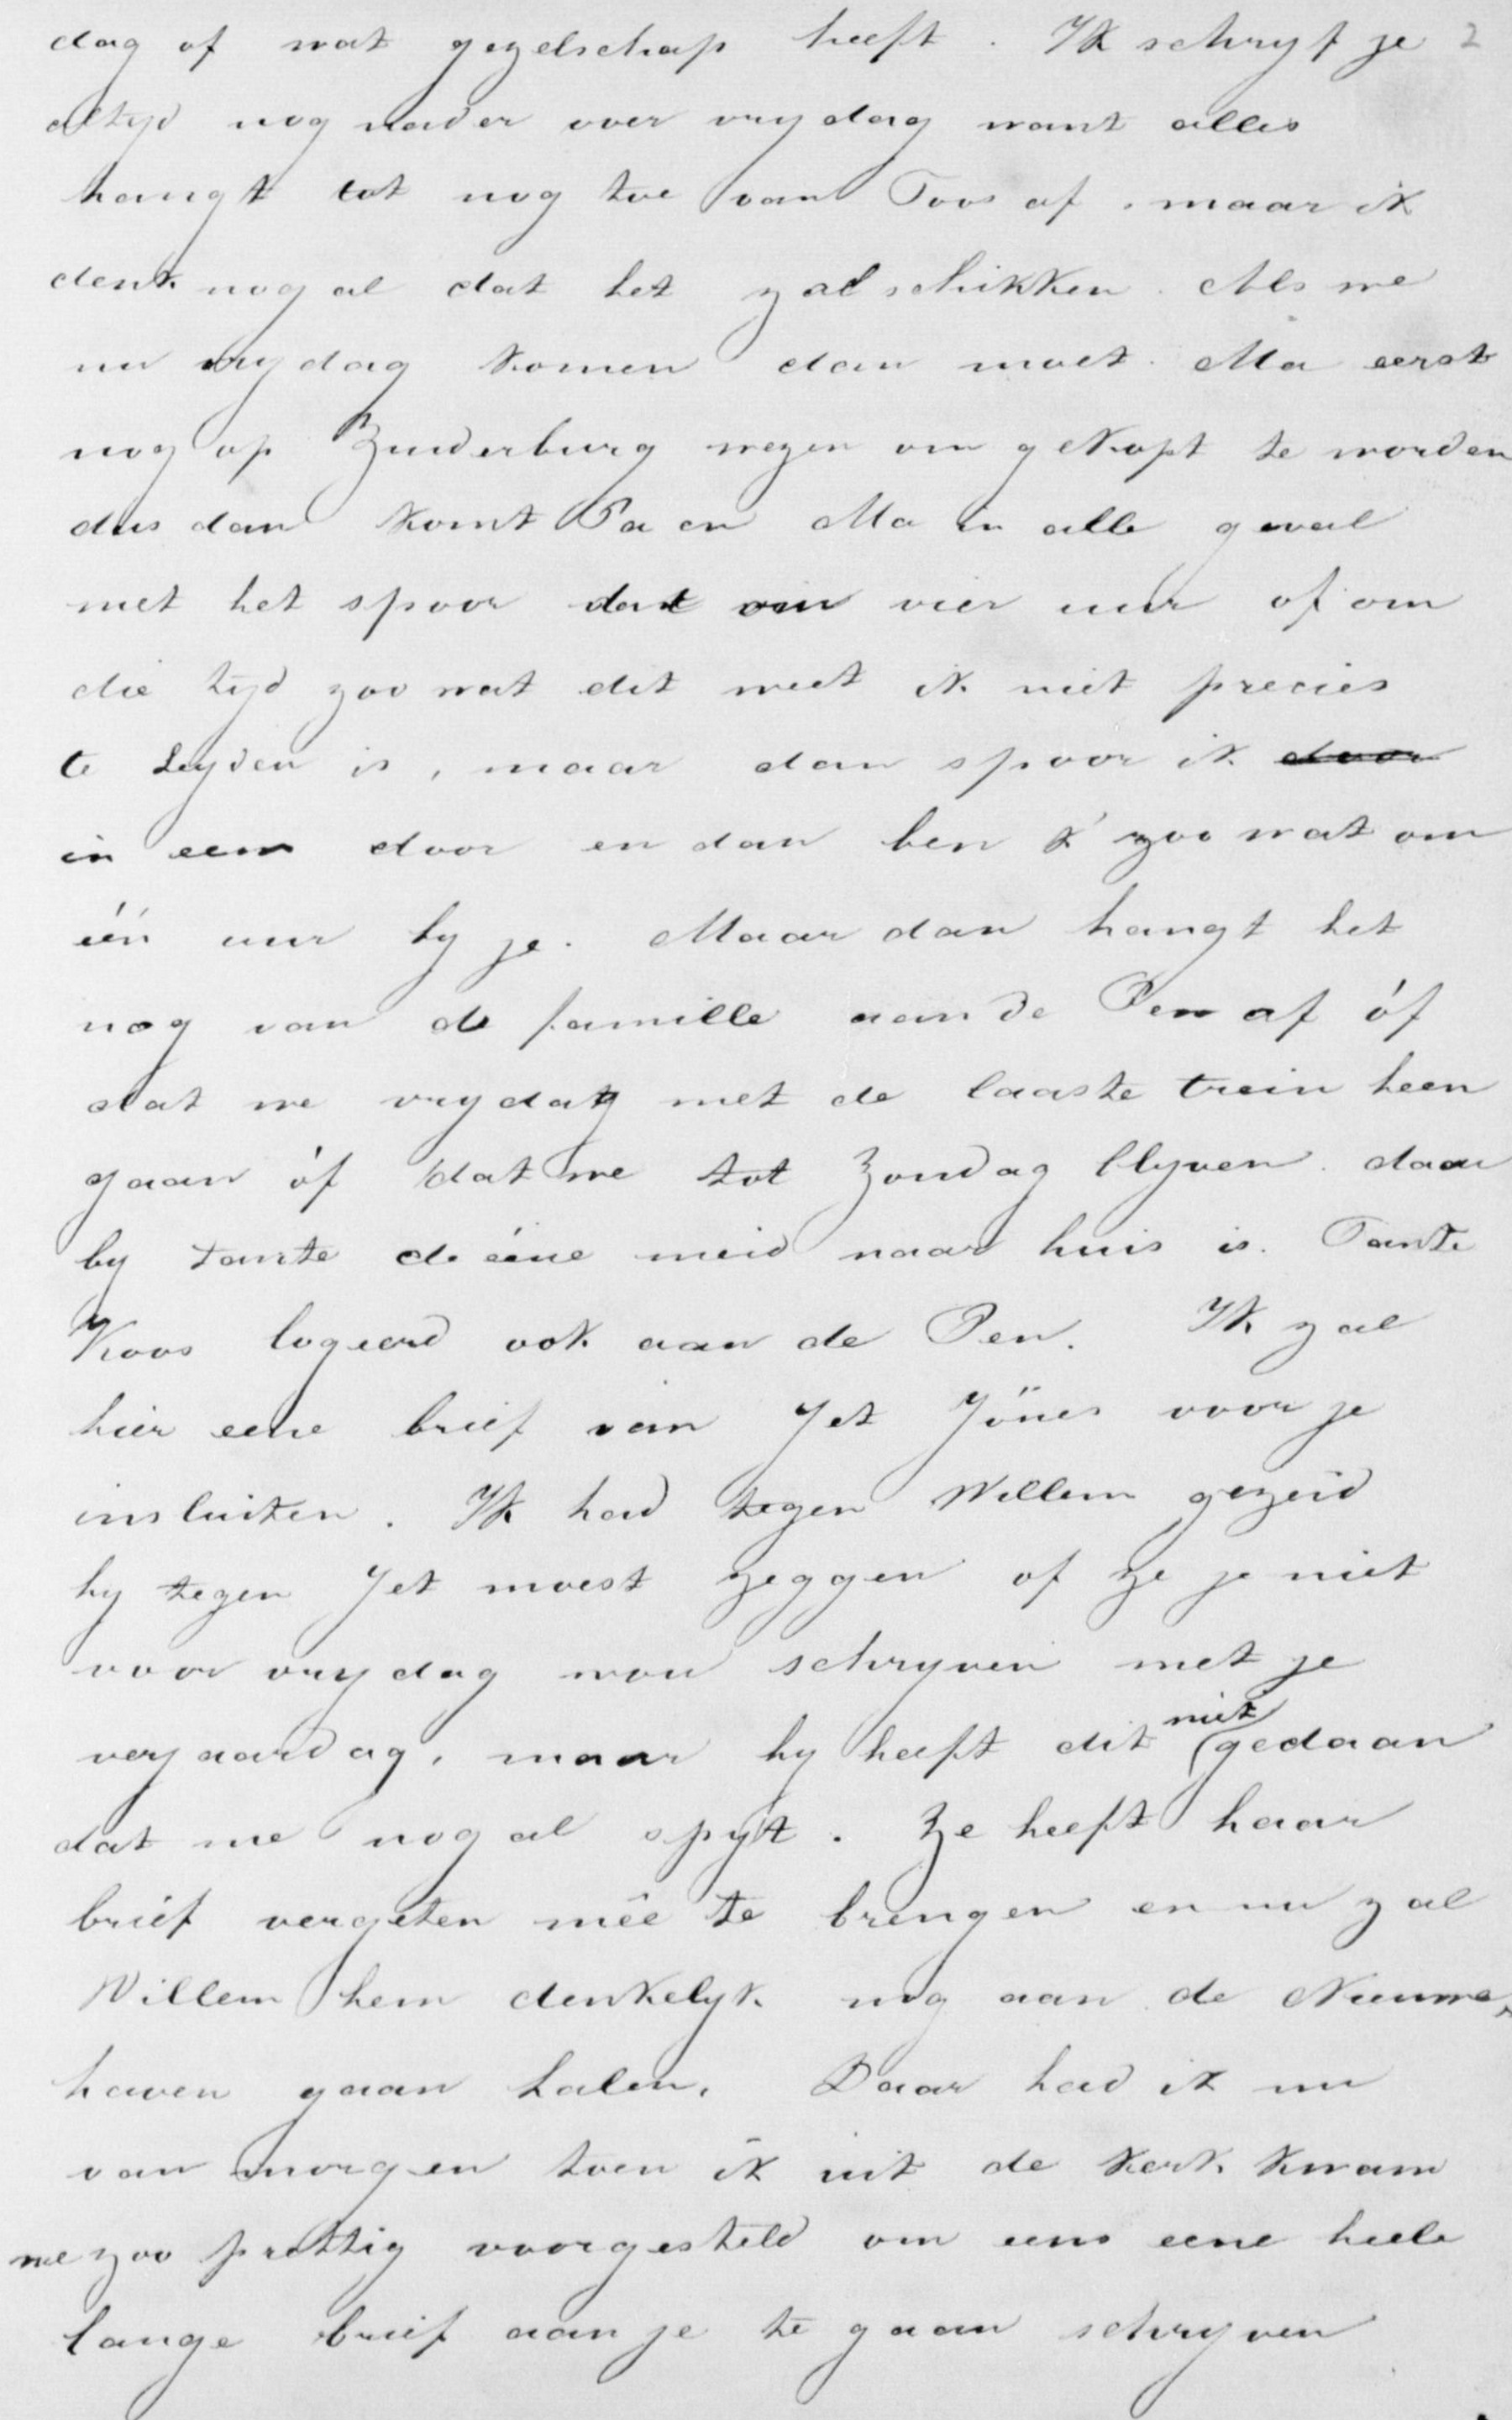 dag of wat gezelschap heeft. Ik schryf je 2
altyd nog nader over vrydag want alles
hangt tot nog toe van Toos af, maar ik
denk nog al dat het zal schikken. Als we
nu vrydag komen dan moet Ma eerst
nog op Zuiderburg wezen om gekopt te worden
dus dan komt Pa en Ma in alle geval
met het spoor dat om vier uur of om
die tyd zoo wat dit weet ik niet precies
te Leyden is, maar dan spoor ik ~~door~~
in een door en dan ben k' zoo wat om
één uur by je. Maar dan hangt het
nog van de famille aan de Pen af óf
dat we vrydag met de laaste trein heen
gaan óf dat we tot Zondag blyven daar
by tante de ééne meid naar huis is. Tante
Koos logeerd ook aan de Pen. Ik zal
hier eene brief van Jet Jönes voor je
insluiten. Ik had tegen Willem gezeid
hy tegen Jet moest zeggen of ze je niet
voor vrydag wou schryven met je
verjaardag, maar hy heeft dit niet gedaan
dat me nog al spyt. Ze heeft haar
brief vergeten mêe te brengen en nu zal
Willem hem denkelyk nog aan de Nieuwe
haven gaan halen. Daar had ik nu
van morgen toen ik uit de kerk kwam
me zoo prettig voorgesteld om eens eene heele
lange brief aan je te gaan schryven